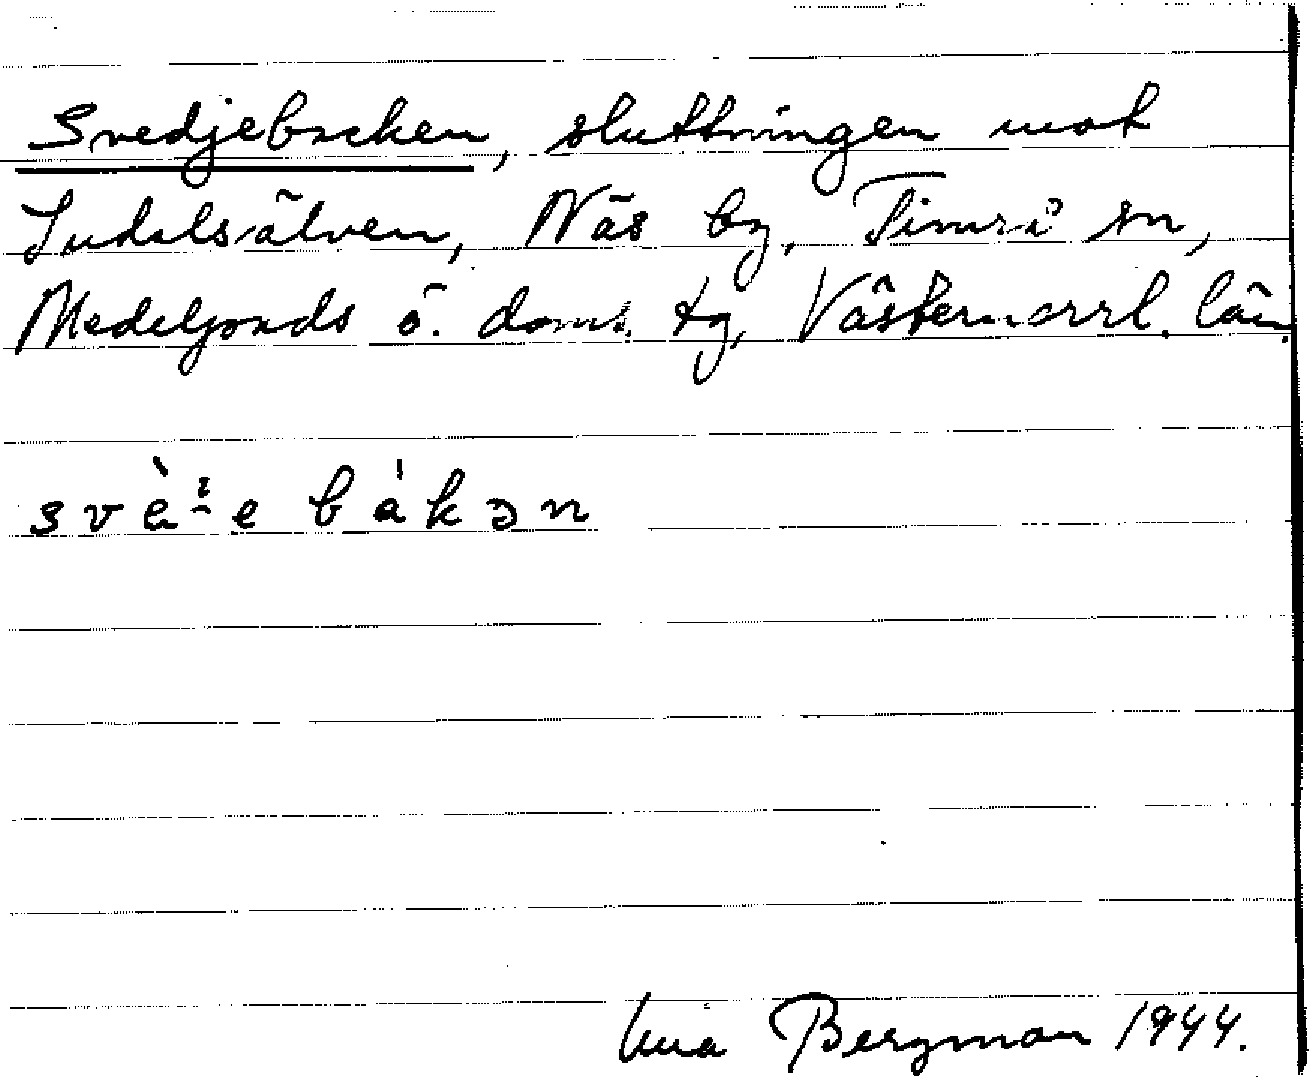 Svedjebacken, sluttningen mot
Indalsälven, Näs by, Timrå sn,
Medelpads ö. doms. tg, Västernorrl. län.
bákən
Bergman 1944.